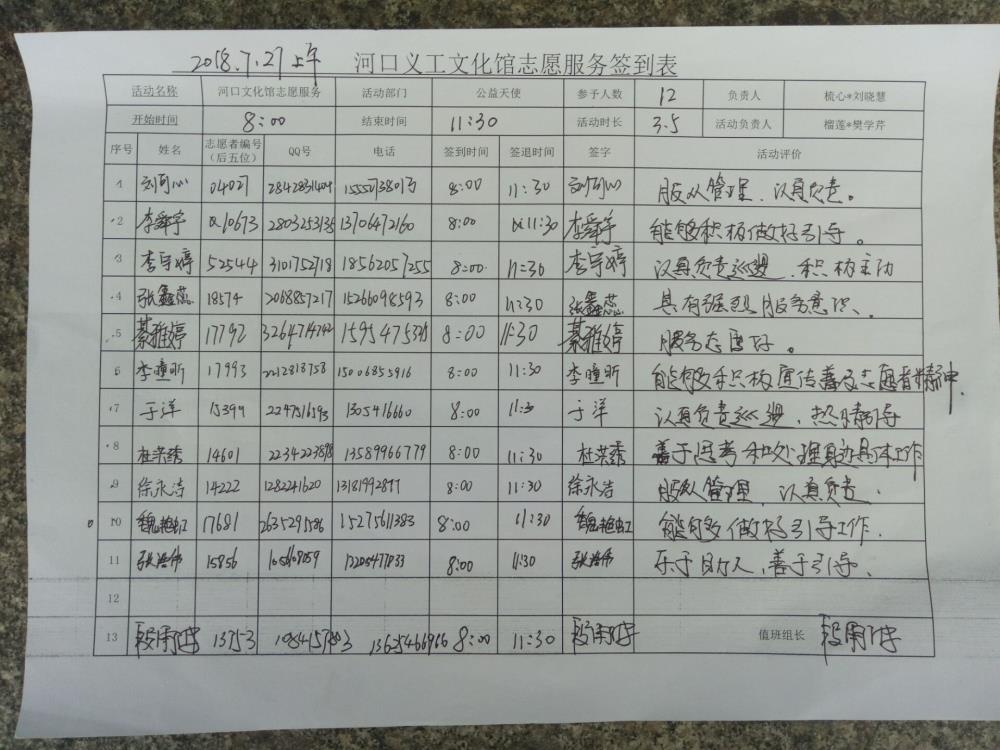 2018.7.27上午 河口义工文化馆志愿服务签到表
活动名称 河口文化馆志愿服务 活动部门 公益天使 参予人数 12 负责人 梳心*刘晓慧
开始时间 8:00 结束时间 11:30 活动时长 3.5 活动负责人 榴莲*樊学芹
序号 姓名 志愿者编号（后五位） QQ号 电话 签到时间 签退时间 签字 活动评价
1 刘可心 04027 2842831404 8:00 11:30 刘可心 服从管理、认真负责。
2 李舜宇 10673 2803253135 13706472160 8:00 11:30 李舜宇 能够积极做好引导。
3 李宇婷 52544 3101752718 18562057255 8:00 11:30 李宇婷 认真负责巡逻、积极主动
4 张鑫蕊 18574 2068857217 15266098593 8:00 11:30 张鑫蕊 具有强烈服务意识、
5 綦雅婷 17792 8:00 11:30 綦雅婷 服务态度好。
6 李瞳昕 17993 2212818758 15006855916 8:00 11:30 李瞳昕 能够积极宣传普及志愿者精神.
7 于洋 15399 2247516193 1305416660 8:00 11:3 于洋 认真负责巡逻，热情引导
8 杜洪绣 14601 13589966779 8:00 11:30 杜洪绣 善于思考和处理身边具体工作
9 徐永洁 14222 1282241620 8:00 11:30 徐永洁 服从管理、认真负责.
10 魏艳虹 17681 2635295586 15275611383 8:00 11:30 魏艳虹 能够做好引导工作.
11 15856 8:00 11:30 乐于助人、善于引导、
12
13 13753 8:00 11:30 值班组长